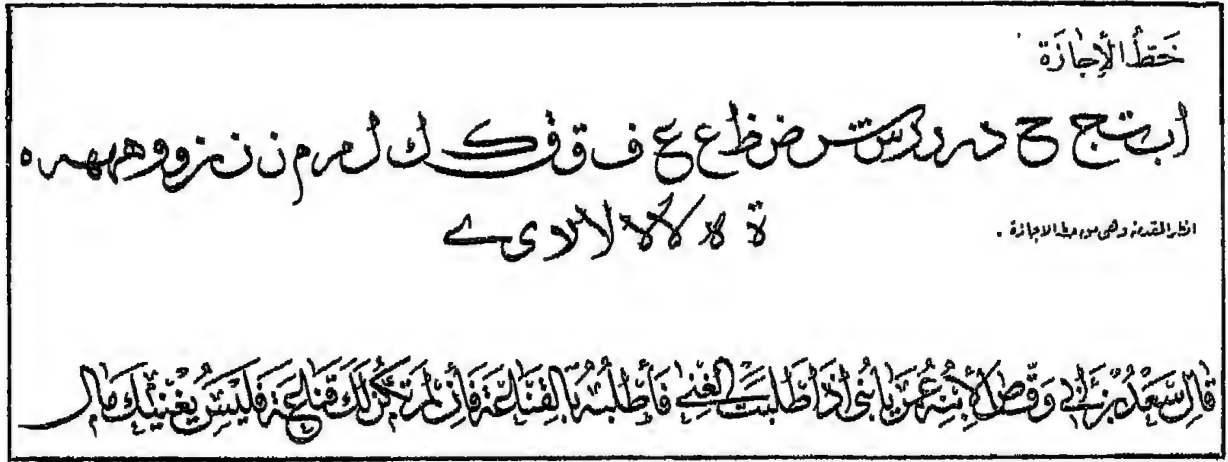 خَطُّ الْإِجَازَة
ا ب ت ج ح د ر د ر س ش ض ظ ع غ ف ق ف ك ك ل م ر م ن ن ز و و ه هه ه ه
ة لا لا لا لا لا ى ے
انظر المقدمة وهى من خط الاجازة .
قَالَ سَعْدُ بْنُ أَبِى وَقَّاصٍ لِإِبْنِهِ عُمَرَ يَا بُنَى اذَا طَلَبْتَ الْغِنَى فَأَطْلُبْهُ بِالْقَنَاعَةِ فَإِنْ لَمْ تَكُنْ لَكَ قَنَاعَة فَلَيْسَ يُغْنِيكَ مَال